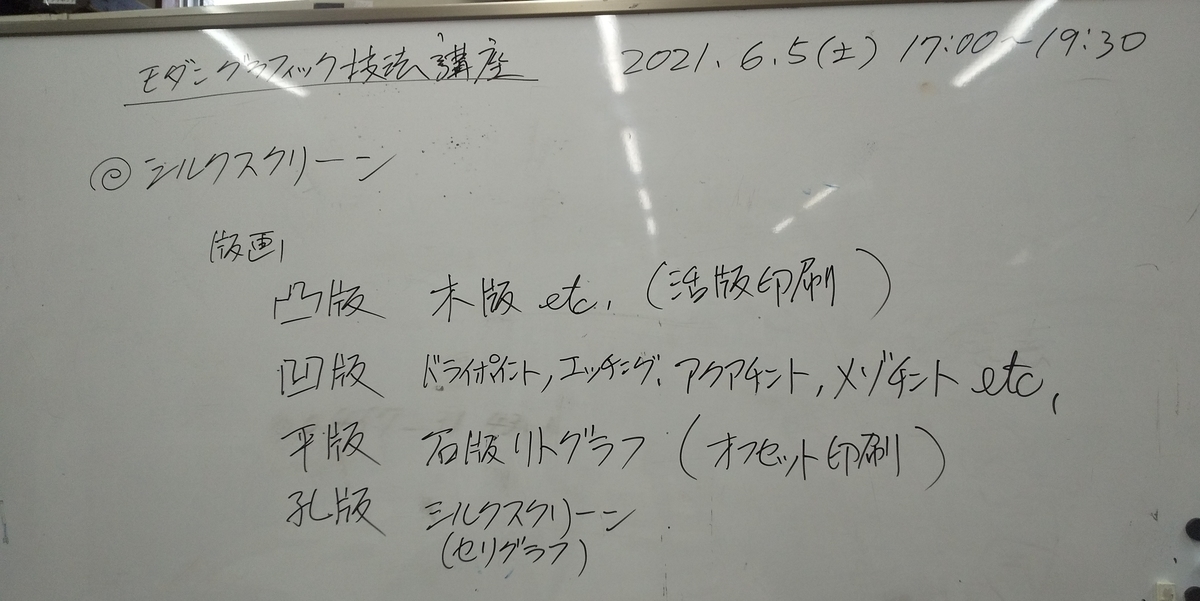 モダングラフィック技法講座 2021.6.5(土) 17:00~19:30
◎シルクスクリーン
版画
凸版 木版 etc. (活版印刷)
凹版 ドライポイント, エッチング, アクアチント, メゾチント etc.
平版 石版リトグラフ (オフセット印刷)
孔版 シルクスクリーン
(セリグラフ)